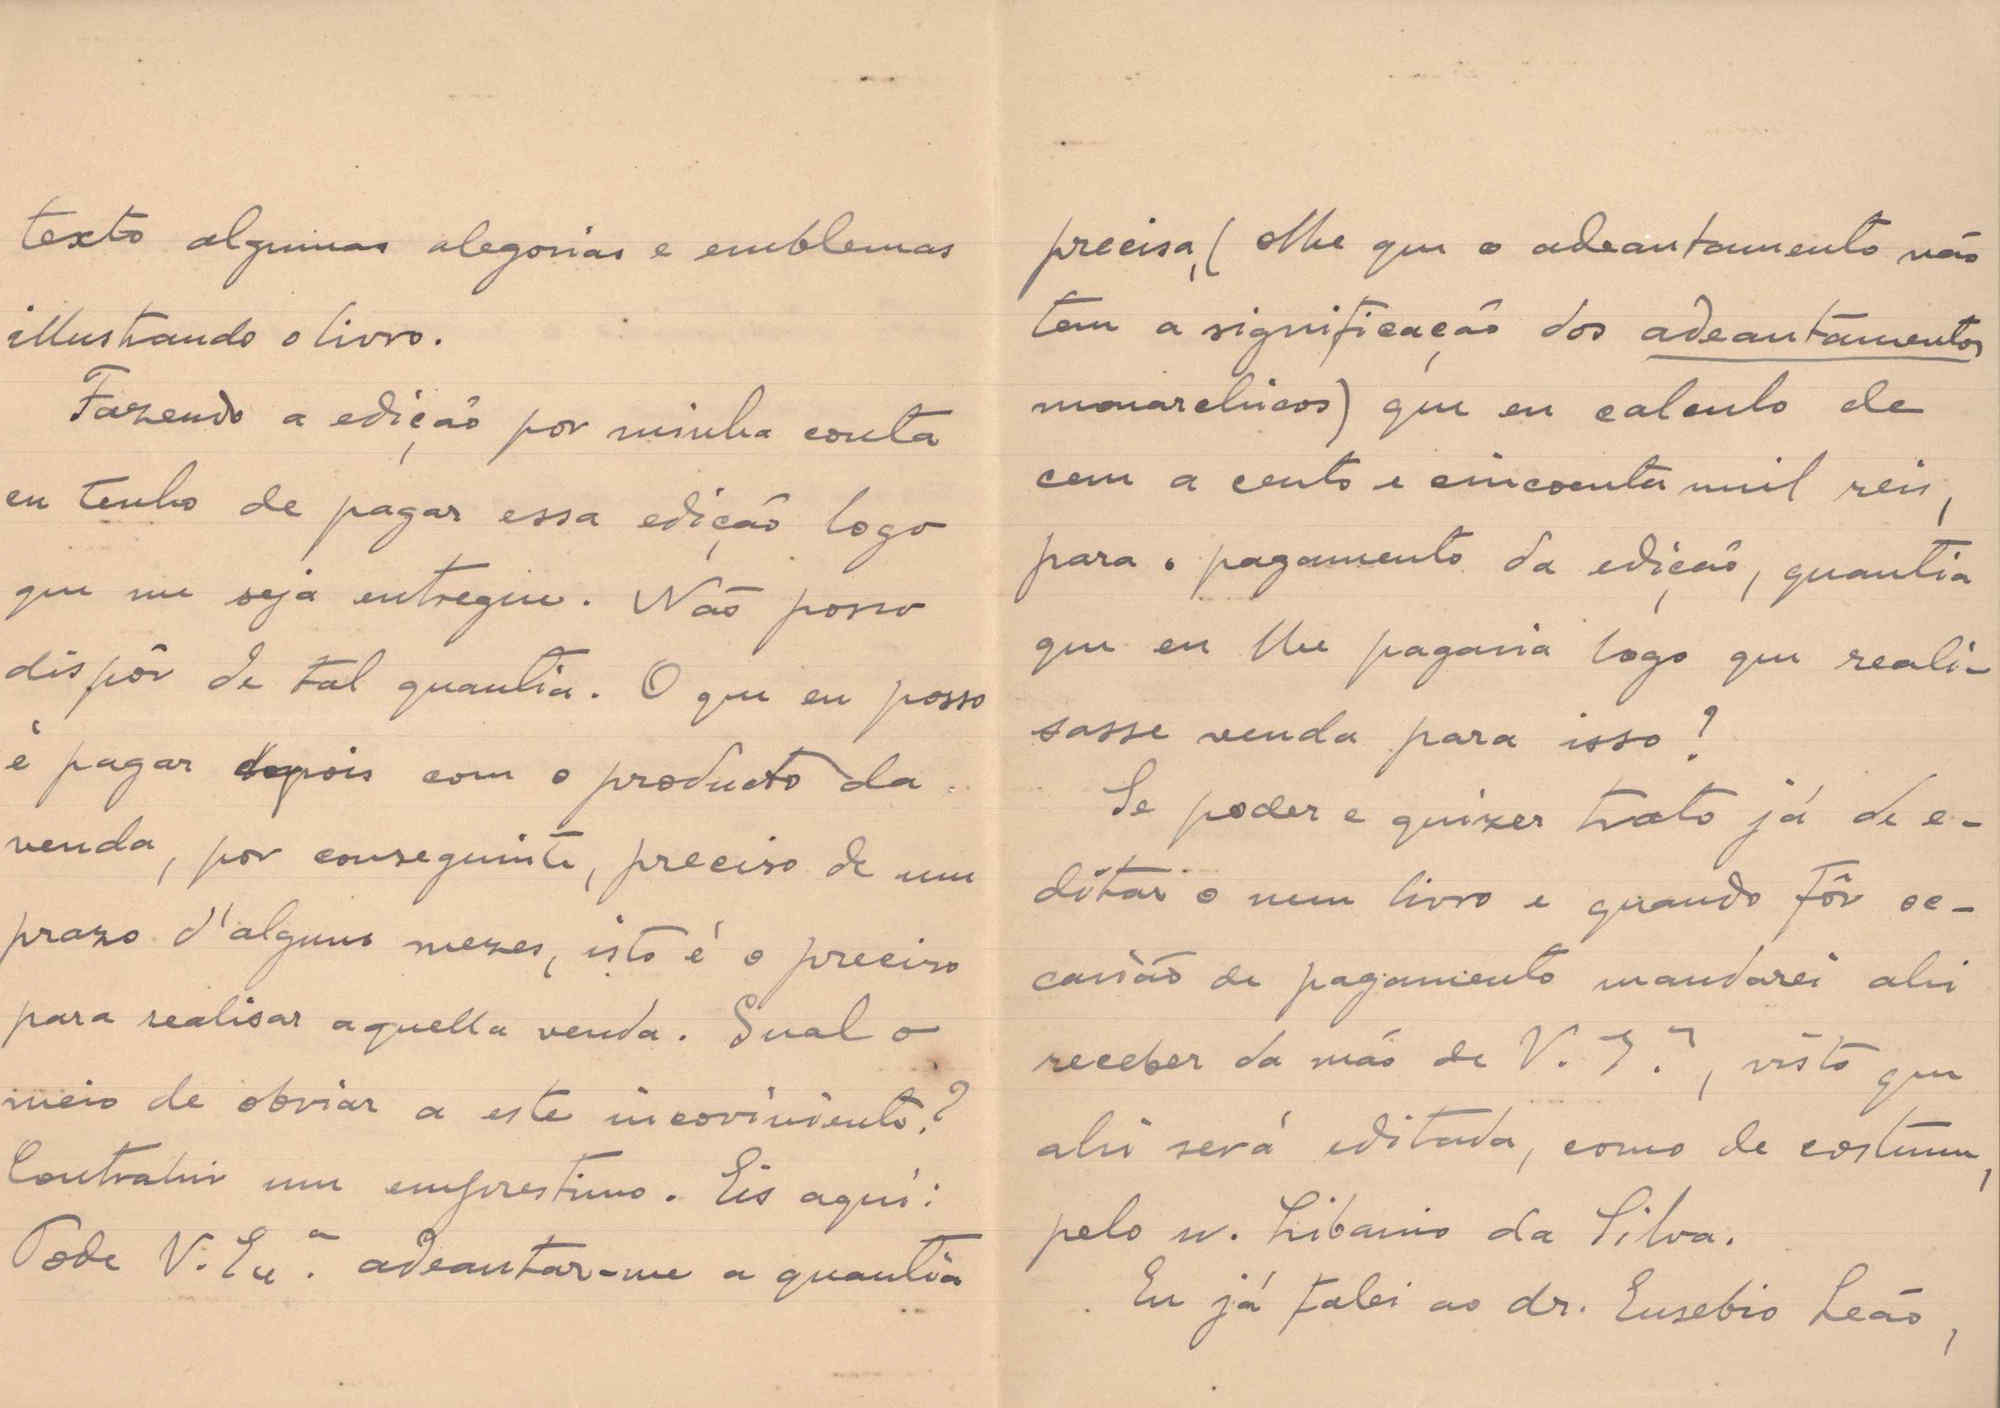 texto algumas alegorias e emblemas
illustrando o livro.
Fazendo a edição por minha conta
eu tenho de pagar essa edição logo
que me seja entregue. Não posso
dispôr de tal quantia. O que eu posso
é pagar depois com o producto da
venda, por conseguinte, preciso de um
prazo d'alguns mezes, isto é o preciso
para realisar aquella venda. Qual o
meio de obviar a este incoviniente?
Contrahir um emprestimo. Eis aqui:
Pode V. Ex.ª adeantar-me a quantia
precisa, (olhe que o adeantamento não
tem a significação dos adeantamentos
monarchicos) que eu calculo de
cem a cento e cincoenta mil reis,
para o pagamento da edição, quantia
que eu lhe pagaria logo que reali-
sasse venda para isso?
Se poder e quizer trato já de e-
ditar o meu livro e quando fôr oc-
casião de pagamento mandarei ahi
receber da mão de V. Ex.ª, visto que
ahi será editada, como de costume,
pelo sr. Libanio da Silva.
Eu já falei ao dr. Eusebio Leão,